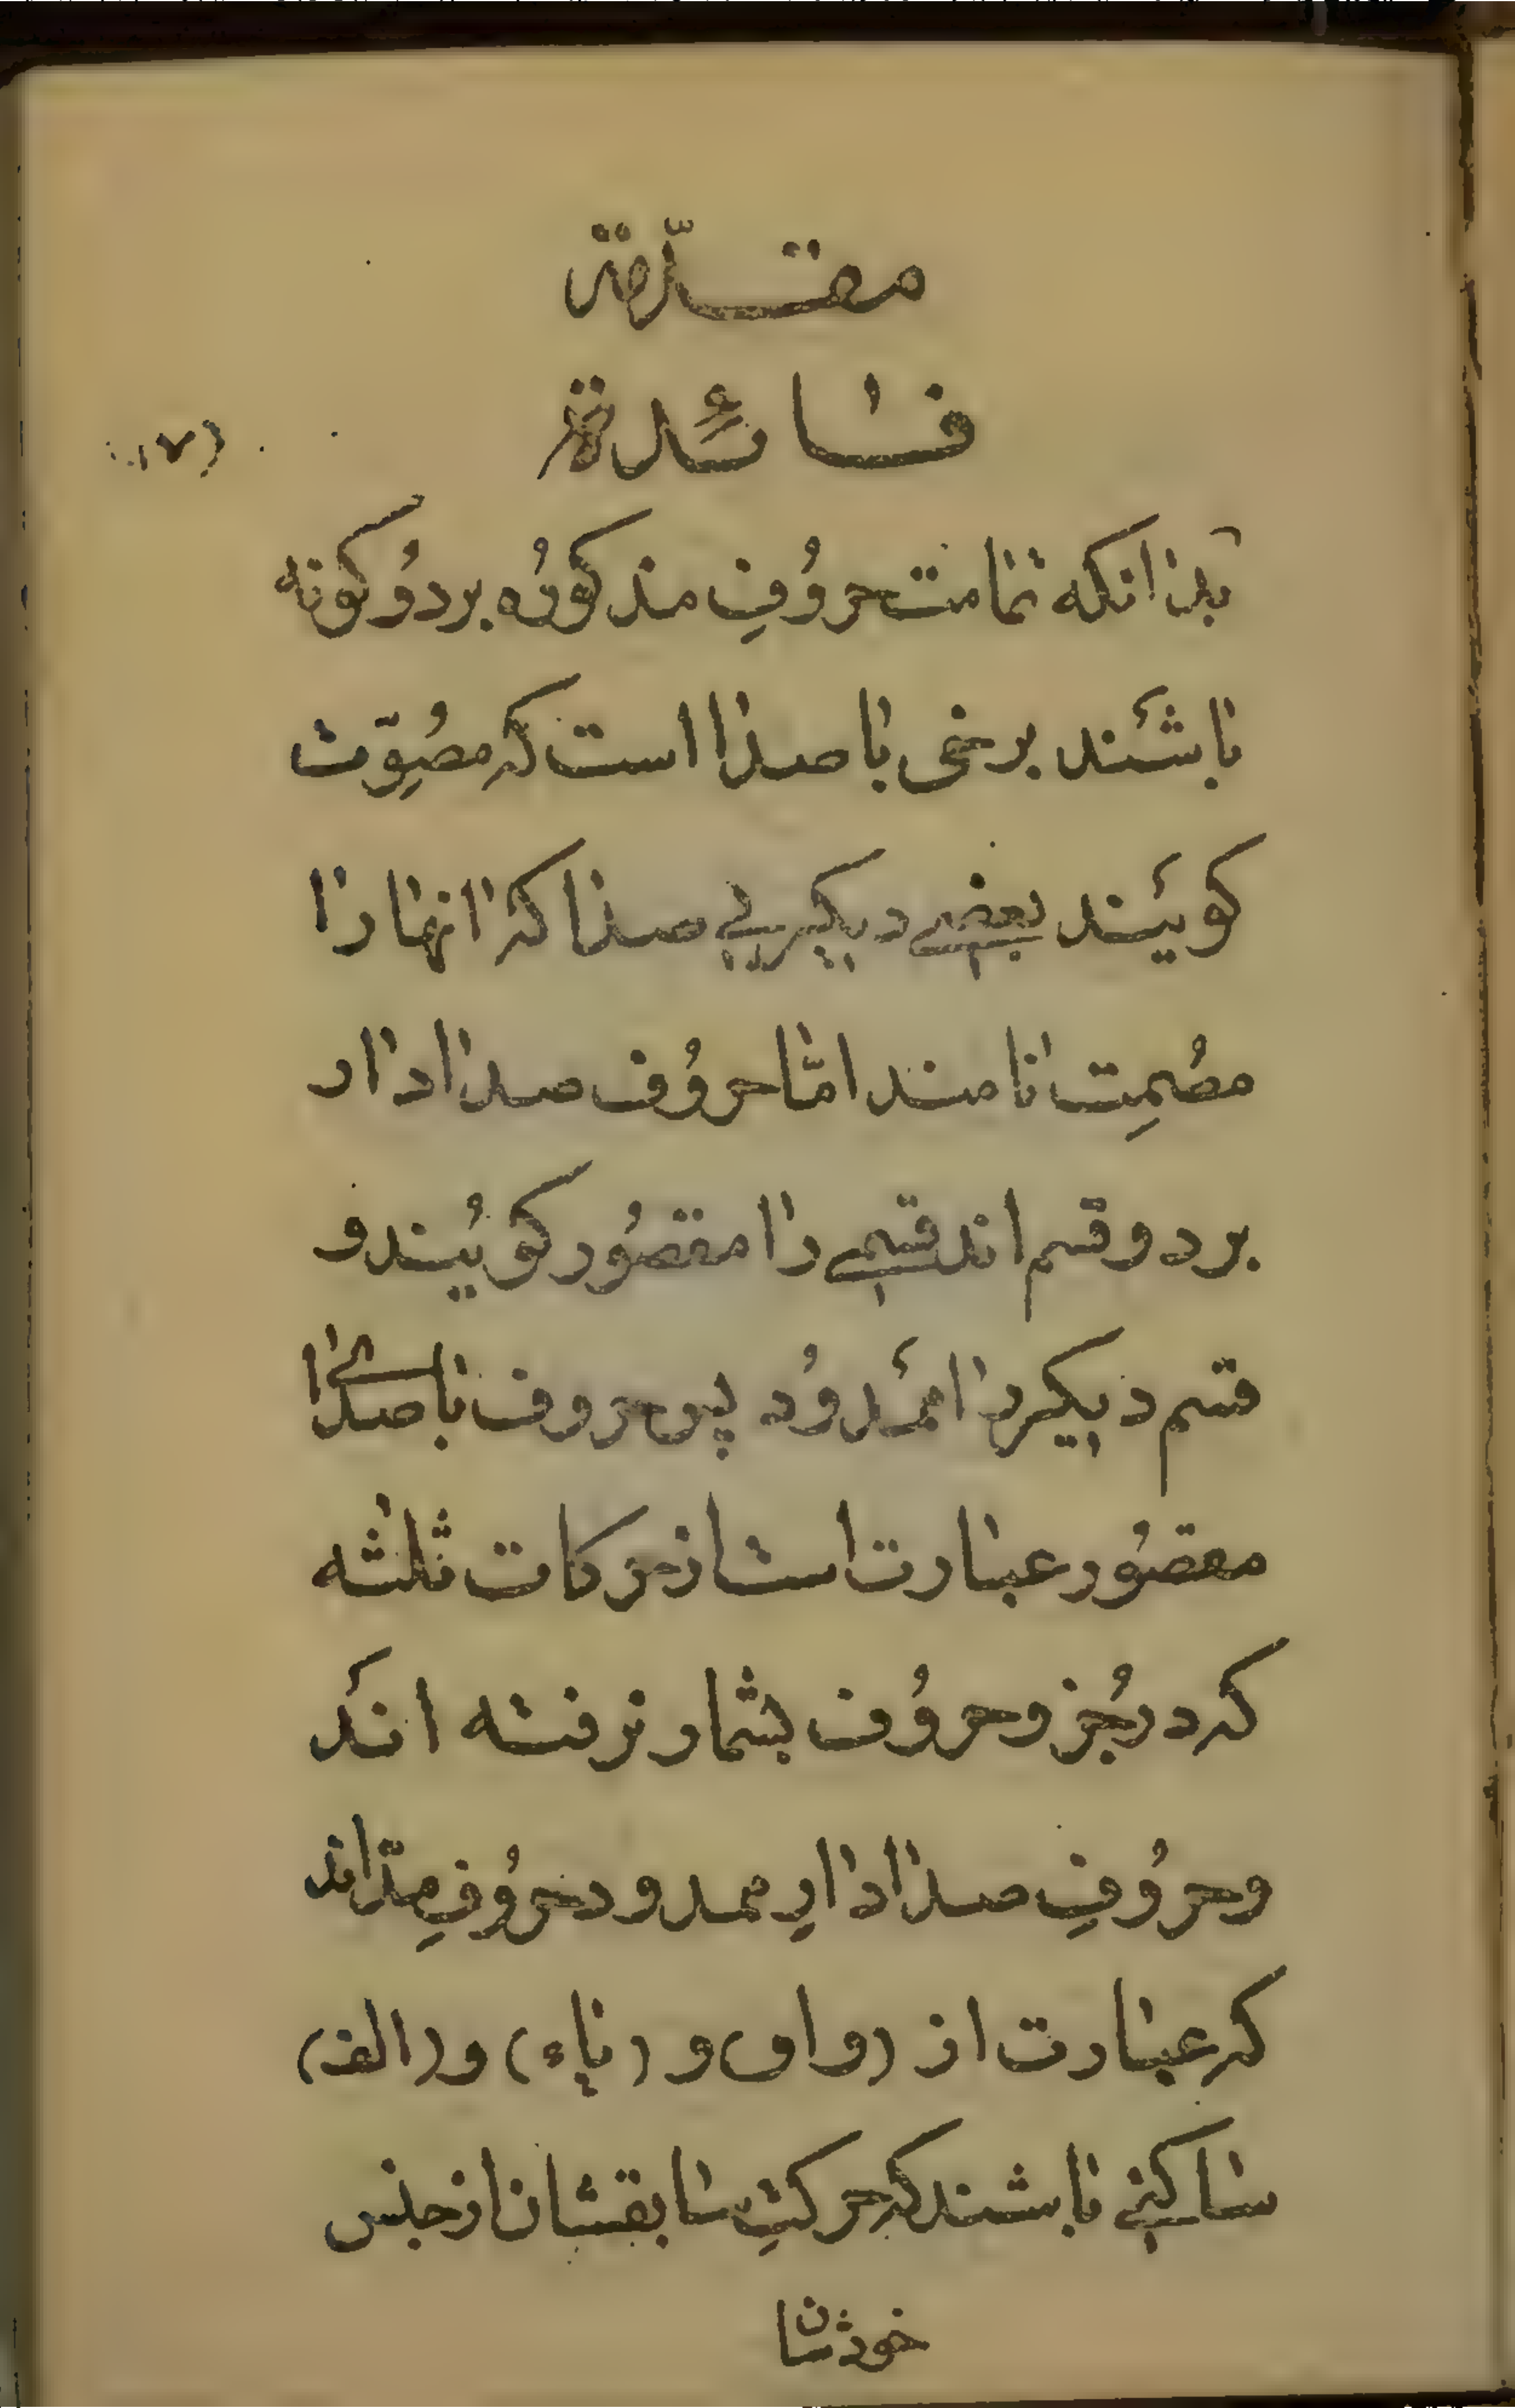 مقدّمة
فائدة
(۱۷)
بدانکه تمامت حروُفِ مذکوُره بر دوُ کونه
باشَند برخی با صدا است که مصُوِّت
کویَند بعضے دیکر بے صدا که انها را
مصُمِت نامند امّا حروُف صدادار
بر دو قسم اند قسمے را مقصُور کویُند و
قسم دیکر را ممَدوُد پس حروف با صدای
مقصُور عبارت است از حرکات ثلثه
که در جُزو حروُف بشمار نرفته اند
و حروُفِ صدادارِ ممدود حروُفِ مدّ اند
که عبارت از (واو) و (یاء) و (الف)
ساکنے باشند که حرکتِ سابقشان از جنس
خودشان